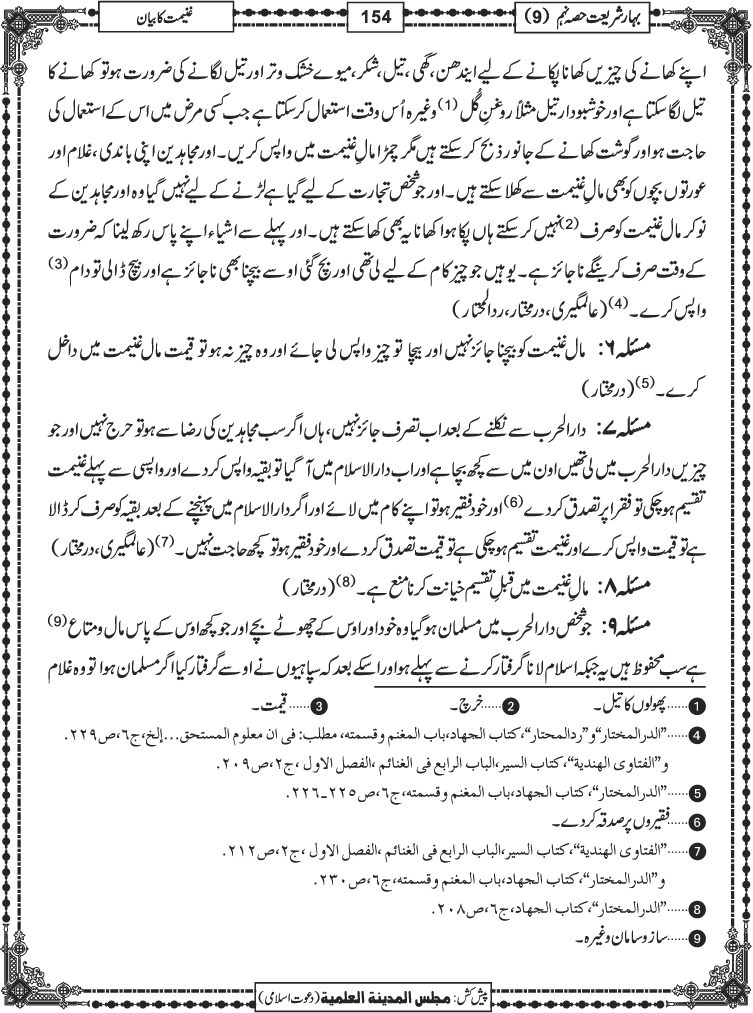 بہارِ شریعت حصہ نہم (9)
154
غنیمت کا بیان
اپنے کھانے کی چیزیں کھانا پکانے کے لیے ایندھن، گھی، تیل، شکر، میوے خشک وتر اور تیل لگانے کی ضرورت ہو تو کھانے کا
تیل لگا سکتا ہے اور خوشبودار تیل مثلاً روغنِ گُل (1) وغیرہ اُس وقت استعمال کر سکتا ہے جب کسی مرض میں اس کے استعمال کی
حاجت ہو اور گوشت کھانے کے جانور ذبح کر سکتے ہیں مگر چمڑا مالِ غنیمت میں واپس کریں۔ اور مجاہدین اپنی باندی، غلام اور
عورتوں بچوں کو بھی مالِ غنیمت سے کھلا سکتے ہیں۔ اور جو شخص تجارت کے لیے گیا ہے لڑنے کے لیے نہیں گیا وہ اور مجاہدین کے
نوکر مال غنیمت کو صرف (2) نہیں کر سکتے ہاں پکا ہوا کھانا یہ بھی کھا سکتے ہیں۔ اور پہلے سے اشیاء اپنے پاس رکھ لینا کہ ضرورت
کے وقت صرف کرینگے ناجائز ہے۔ یوہیں جو چیز کام کے لیے لی تھی اور بچ گئی اوسے بیچنا بھی ناجائز ہے اور بیچ ڈالی تو دام (3)
واپس کرے۔ (4) (عالمگیری، درمختار، ردالمحتار)
مسئلہ ۶: مال غنیمت کو بیچنا جائز نہیں اور بیچا تو چیز واپس لی جائے اور وہ چیز نہ ہو تو قیمت مال غنیمت میں داخل
کرے۔ (5) (درمختار)
مسئلہ ۷: دارالحرب سے نکلنے کے بعد اب تصرف جائز نہیں، ہاں اگر سب مجاہدین کی رضا سے ہو تو حرج نہیں اور جو
چیزیں دارالحرب میں لی تھیں اون میں سے کچھ بچا ہے اور اب دارالاسلام میں آگیا تو بقیہ واپس کردے اور واپسی سے پہلے غنیمت
تقسیم ہو چکی تو فقرا پر تصدق کر دے (6) اور خود فقیر ہو تو اپنے کام میں لائے اور اگر دارالاسلام میں پہنچنے کے بعد بقیہ کو صرف کر ڈالا
ہے تو قیمت واپس کرے اور غنیمت تقسیم ہو چکی ہے تو قیمت تصدق کر دے اور خود فقیر ہو تو کچھ حاجت نہیں۔ (7) (عالمگیری، درمختار)
مسئلہ ۸: مالِ غنیمت میں قبلِ تقسیم خیانت کرنا منع ہے۔ (8) (درمختار)
مسئلہ ۹: جو شخص دارالحرب میں مسلمان ہوگیا وہ خود اور اوس کے چھوٹے بچے اور جو کچھ اوس کے پاس مال ومتاع (9)
ہے سب محفوظ ہیں یہ جبکہ اسلام لانا گرفتار کرنے سے پہلے ہو اور اسکے بعد کہ سپاہیوں نے اوسے گرفتار کیا اگر مسلمان ہوا تو وہ غلام
1......پھولوں کا تیل۔ 2......خرچ۔ 3......قیمت۔
4......”الدرالمختار“و”ردالمحتار“،کتاب الجهاد،باب المغنم وقسمته، مطلب: فی ان معلوم المستحق...إلخ،ج٦،ص٢٢٩.
و”الفتاوی الهندیة“،کتاب السیر،الباب الرابع فی الغنائم ،الفصل الاول ،ج٢،ص٢٠٩.
5......”الدرالمختار“،کتاب الجهاد،باب المغنم وقسمته،ج٦،ص٢٢٥ـ٢٢٦.
6......فقیروں پر صدقہ کردے۔
7......”الفتاوی الهندیة“،کتاب السیر،الباب الرابع فی الغنائم ،الفصل الاول ،ج٢،ص٢١٢.
و”الدرالمختار“،کتاب الجهاد،باب المغنم وقسمته،ج٦،ص٢٣٠.
8......”الدرالمختار“،کتاب الجهاد،ج٦،ص٢٠٨.
9......سازوسامان وغیرہ۔
پیش کش: مجلس المدينة العلمية (دعوت اسلامی)